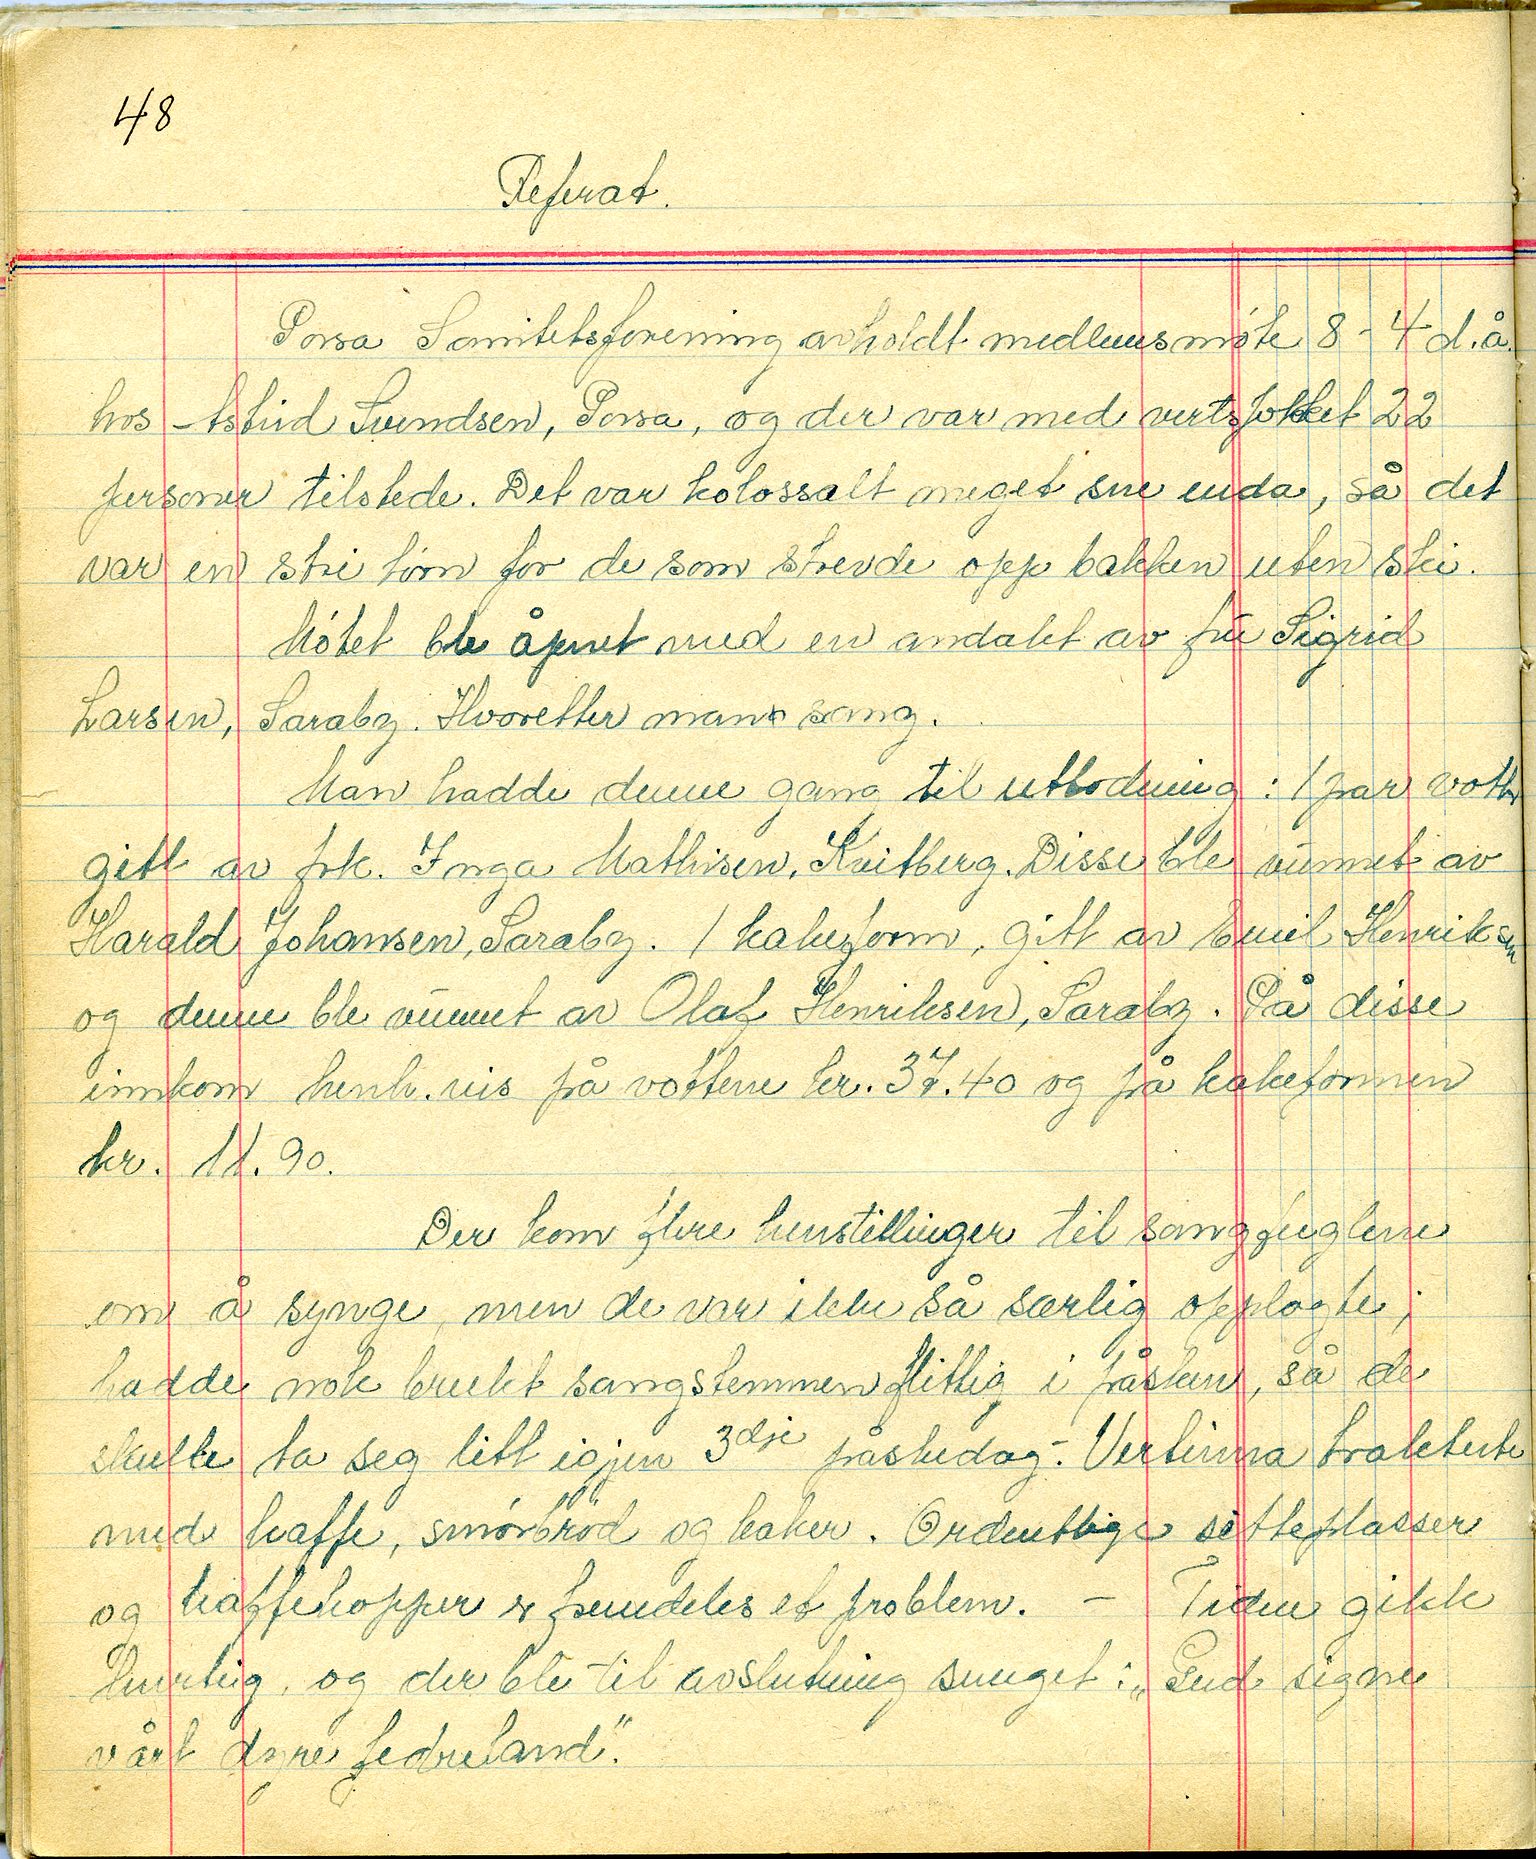 48
Referat.
Porsa Sanitetsforening avholdt medlemsmøte 8 - 4 d.å.
hos Astrid Svendsen, Porsa, og der var med vertsfolket 22
personer tilstede. Det var kolossalt meget sne enda, så det
var en stri tørn for de som strevde opp bakken uten ski.
Møtet ble åpnet med en andakt av fru Sigrid
Larsen, Saraby. Hvoretter man sang.
Man hadde denne gang til utlodning: 1 par votter
gitt av frk. Inga Mathisen, Kvitberg. Disse ble vunnet av
Harald Johansen, Saraby. 1 kakeform, gitt av Emil Henriksen
og denne ble vunnet av Olaf Henriksen, Saraby. På disse
innkom henh.vis på vottene kr. 37.40 og på kakeformen
kr. 11.90.
Der kom flere henstillinger til sangfuglene
om å synge, men de var ikke så særlig opplagte;
hadde nok brukt sangstemmen flittig i påsken, så de
skulle ta seg litt igjen 3dje påskedag. - Vertinna trakterte
med kaffe, smørbrød og kaker. Ordentlige sitteplasser
og kaffekopper er fremdeles et problem. - Tiden gikk
hurtig, og der ble til avslutning sunget: „Gud signe
vårt dyre fedreland".